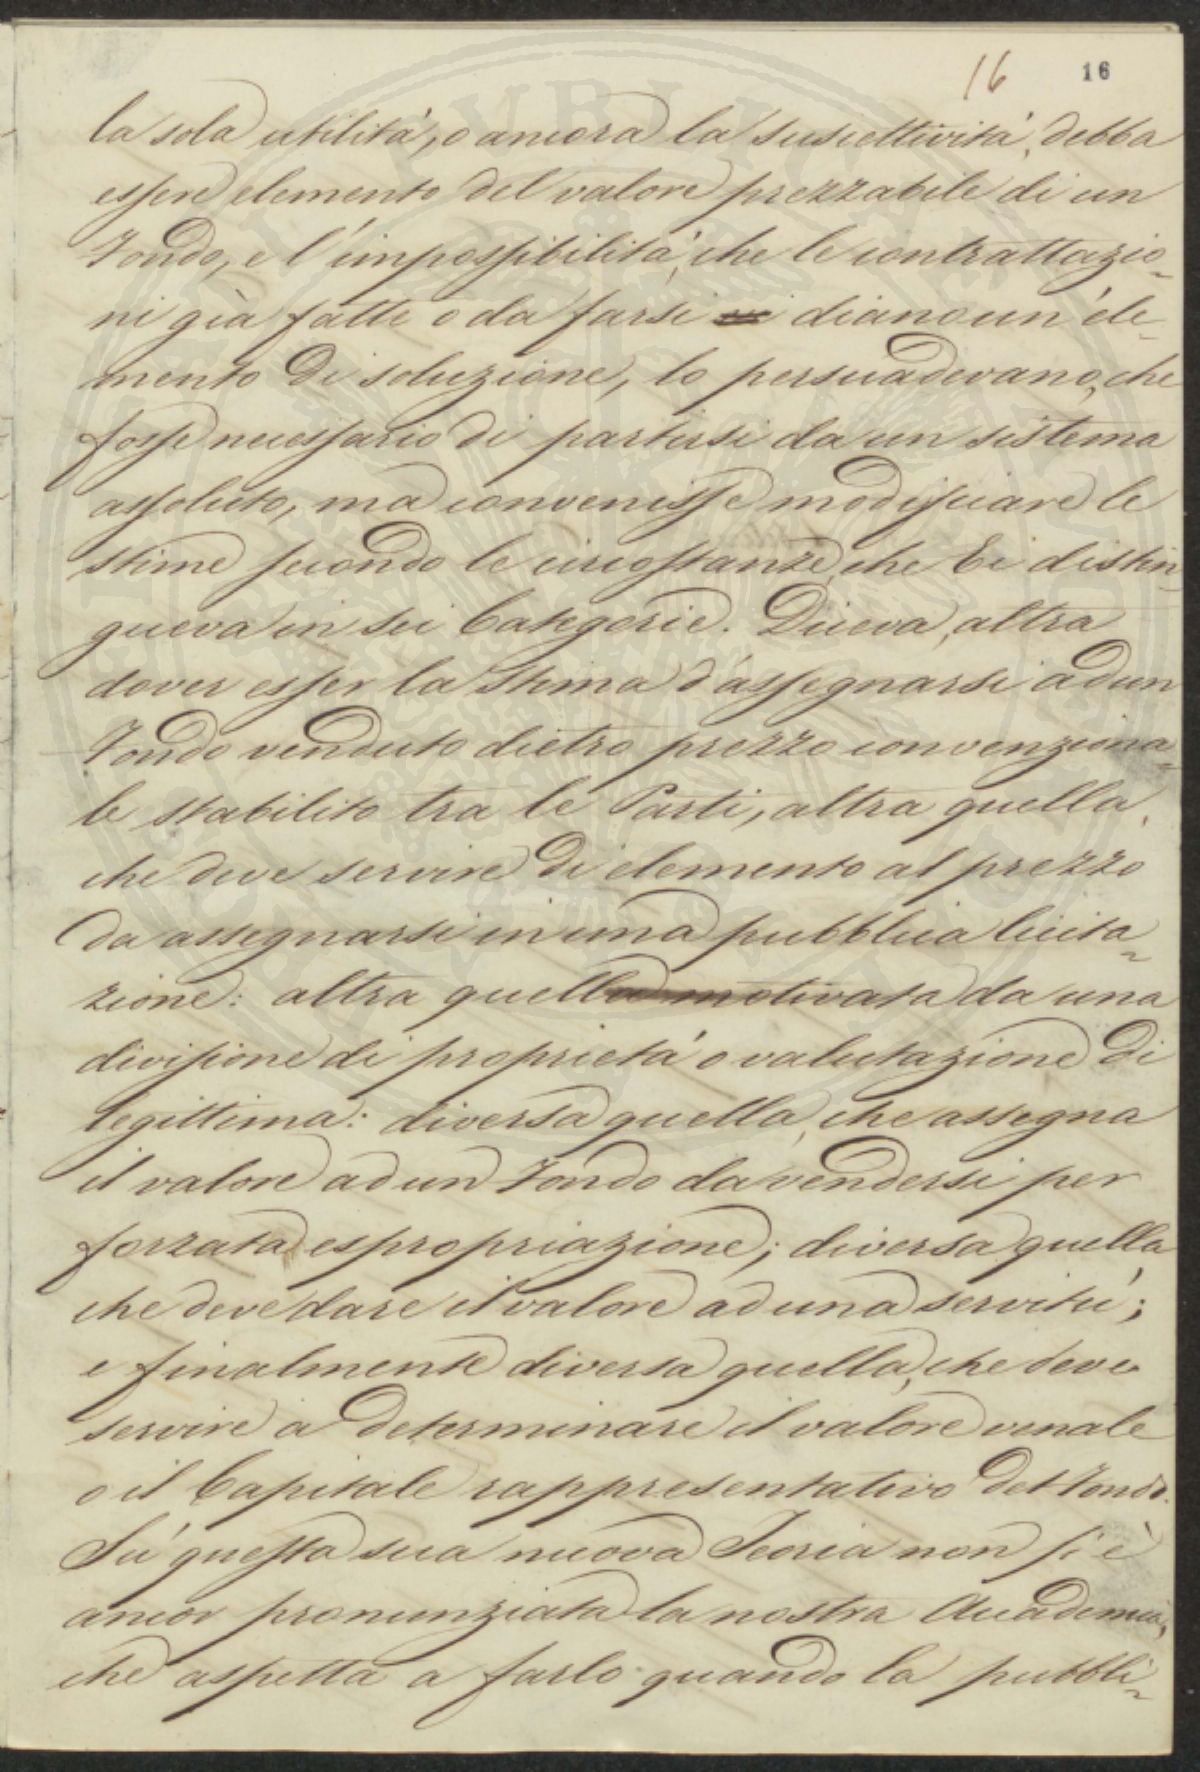 16 16
la sola utilità, o ancora la suscettività, debba
essere elemento del valore prezzabile di un
Fondo, e l'impossibilità, che le contrattazio=
ni già fatte o da farsi diano un'ele=
mento di soluzione, lo persuadevano, che
fosse necessario di partirsi da un sistema
assoluto, ma convenisse modificare le
stime secondo le circostanze, che Ei distin=
gueva in sei Categorie. Diceva, altra
dover esser la stima d'assegnarsi ad un
Fondo venduto dietro prezzo convenziona=
le stabilito tra le Parti, altra quella,
che deve servire di elemento al prezzo
da assegnarsi in una pubblica licita=
zione: altra quella motivata da una
divisione di proprietà o valutazione di
legittima: diversa quella, che assegna
il valore ad un Fondo da vendersi per
forzata espropriazione; diversa quella
che deve dare il valore ad una servitù;
e finalmente diversa quella, che deve
servire a determinare il valore venale
o il Capitale rappresentativo del Fondo.
Sù questa sua nuova Teoria non si è
ancor pronunziata la nostra Accademia,
che aspetta a farlo quando la pubbli=